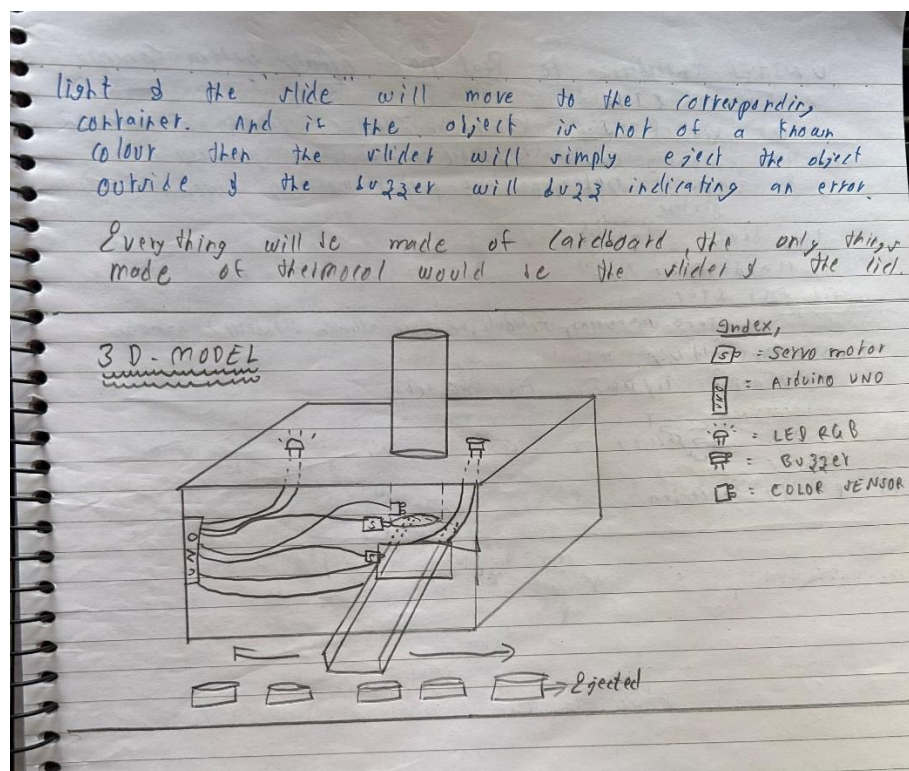 light & the slide will move to the corresponding
container. And if the object is not of a known
colour then the slider will simply eject the object
outside & the buzzer will buzz indicating an error.
Everything will be made of Cardboard, the only things
made of thermocol would be the slider & the lid.
3D-MODEL
Index,
S = Servo motor
UNO = Arduino UNO
= LED RGB
= Buzzer
= COLOR SENSOR
S
S
UNO
Ejected